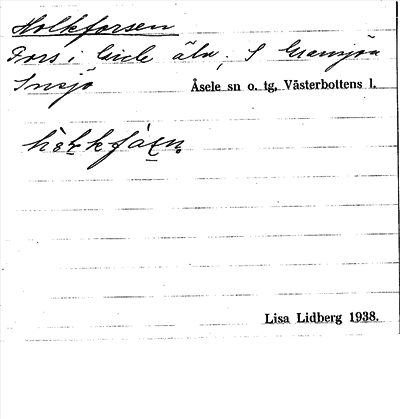 Holkforsen
Fors i Lide älv, S Gransjön
Insjö Åsele sn o. tg, Västerbottens l.
Lisa Lidberg 1938.